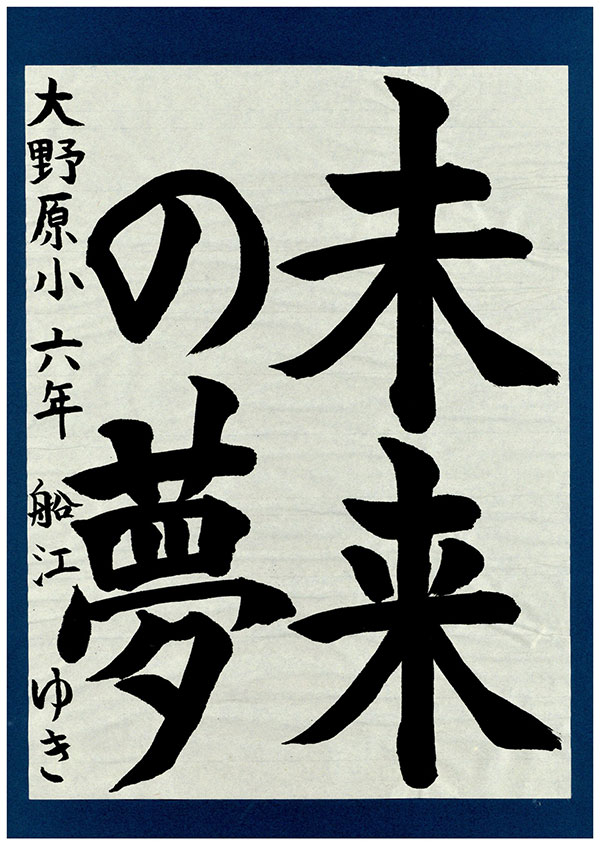 未来
の夢
大野原小 六年 船江 ゆき